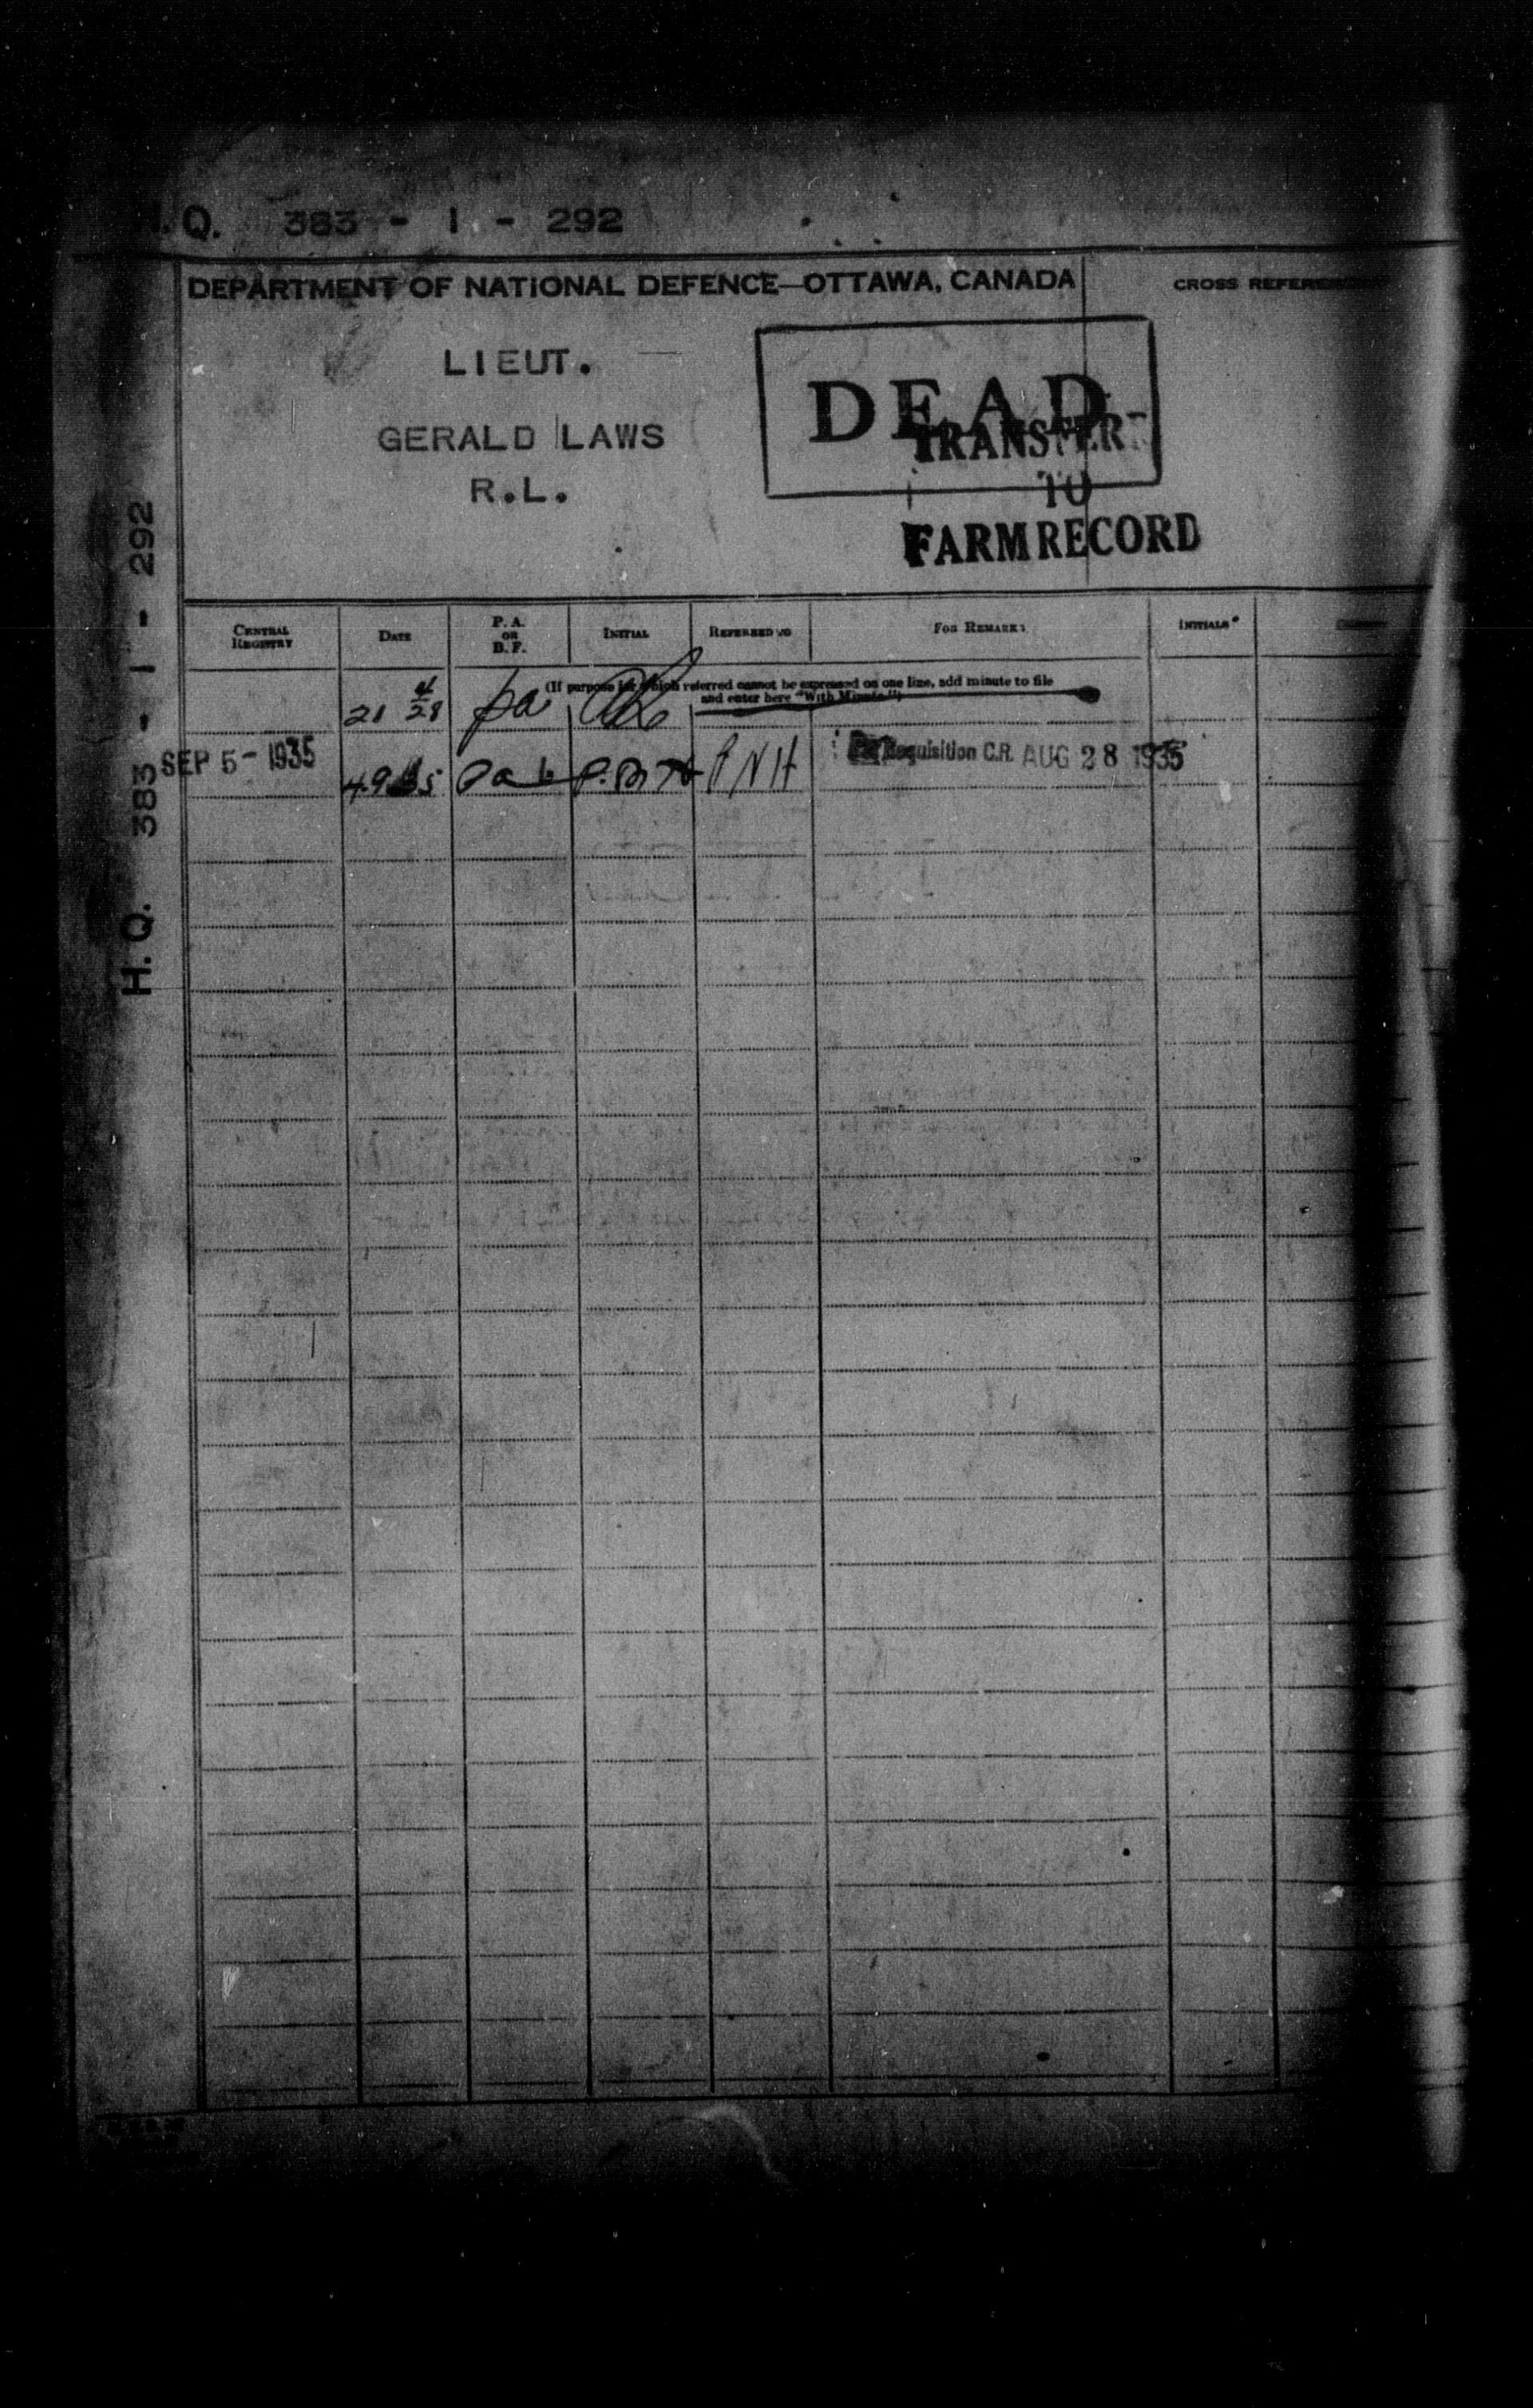 H.Q. 383 - 1 - 292
DEPARTMENT OF NATIONAL DEFENCE—OTTAWA, CANADA
CROSS
LIEUT.
GERALD LAWS
R.L.
DEAD
TRANSFER
TO
FARM RECORD
H.Q. 383 - 1 - 292
CENTRAL REGISTRY
DATE
P. A. OR B. F.
INITIAL
REFERRED TO
FOR REMARKS
INITIALS
(If purpose for which referred cannot be expressed on one line, add minute to file
and enter here "With Minute")
21 4/28 pa
SEP 5 - 1935 4.9.35 PNH Requisition C.R. AUG 28 1935